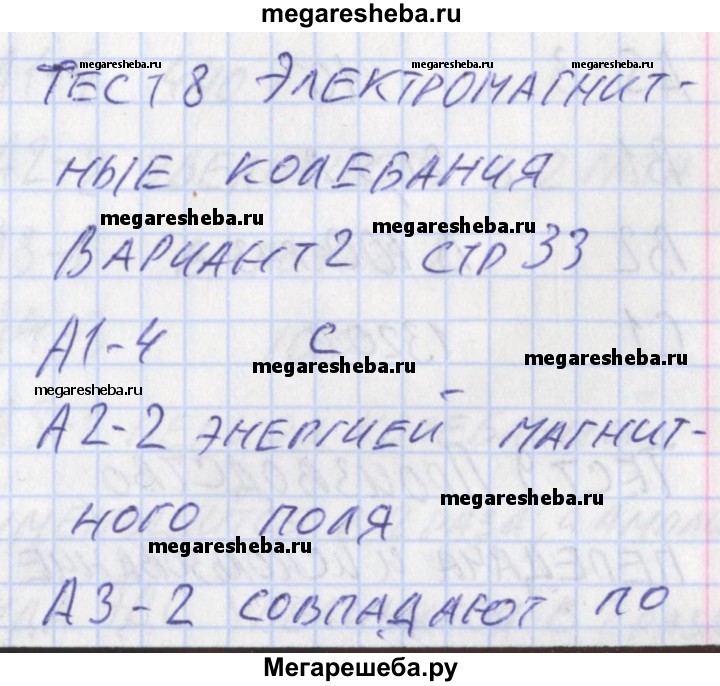 megaresheba.ru
Тест 8 Электромагнит-
megaresheba.ru megaresheba.ru megaresheba.ru
ные колебания
megaresheba.ru megaresheba.ru
Вариант 2 стр 33
А1-4 С
megaresheba.ru megaresheba.ru
megaresheba.ru
А2-2 энергией магнит-
megaresheba.ru
ного поля
megaresheba.ru
А3-2 совпадают по
megaresheba.ru megaresheba.ru
Мегарешеба.ру